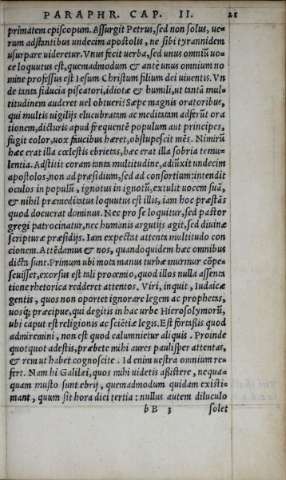 PARAPHR. CAP. II. 21
primatem episcopum. Assurgit Petrus, sed non solus, ue=
rum adstantibus undecim apostolis, ne sibi tyrannidem
usurpare uideretur. Vnus fecit uerba, sed unus omniũ uo=
ce loquutus est, quemadmodum & antè unus omnium no
mine professus est Iesum Christum filium dei uiuentis. Vn
de tanta fiducia piscatori, idiotæ & humili, ut tantã mul=
titudinem auderet uel obtueri? Sæpe magnis oratoribus,
qui multis uigilijs elucubratam ac meditatam adferũt ora
tionem, dicturis apud frequentẽ populum aut principes,
fugit color, uox faucibus hæret, obstupescit mẽs. Nimirũ
hæc erat illa cœlestis ebrietas, hæc erat illa sobria temu=
lentia. Adstitit coram tanta multitudine, adiũxit undecim
apostolos, non ad præsidium, sed ad consortium: intendit
oculos in populũ, ignotus in ignotũ, extulit uocem suã,
& nihil præmeditatus loquutus est illis, iam hoc præstãs
quod docuerat dominus. Nec pro se loquitur, sed pastor
gregi patrocinatur, nec humanis argutijs agit, sed diuinæ
scripturæ præsidijs. Iam expectat attenta multitudo con
cionem. Attẽdamus & nos, quandoquidem hæc omnibus
dicta sunt. Primum ubi mota manus turbæ murmur cõpe=
scuisset, exorsus est tali proœmio, quod illos nulla assenta
tione rhetorica redderet attentos. Viri, inquit, Iudaicæ
gentis, quos non oportet ignorare legem ac prophetas,
uosq́; præcipue, qui degitis in hac urbe Hierosolymorũ,
ubi caput est religionis ac sciẽtiæ legis. Est fortassis quod
admiremini, non est quod calumnietur aliquis. Proinde
quotquot adestis, præbete mihi aures paulisper attentas,
& rem ut habet cognoscite. Id enim uestra omnium re=
fert. Nam hi Galilei, quos mihi uidetis assistere, nequa=
quam musto sunt ebrij, quemadmodum quidam existi=
mant, quum sit hora diei tertia: nullus autem diluculo
bB 3 solet